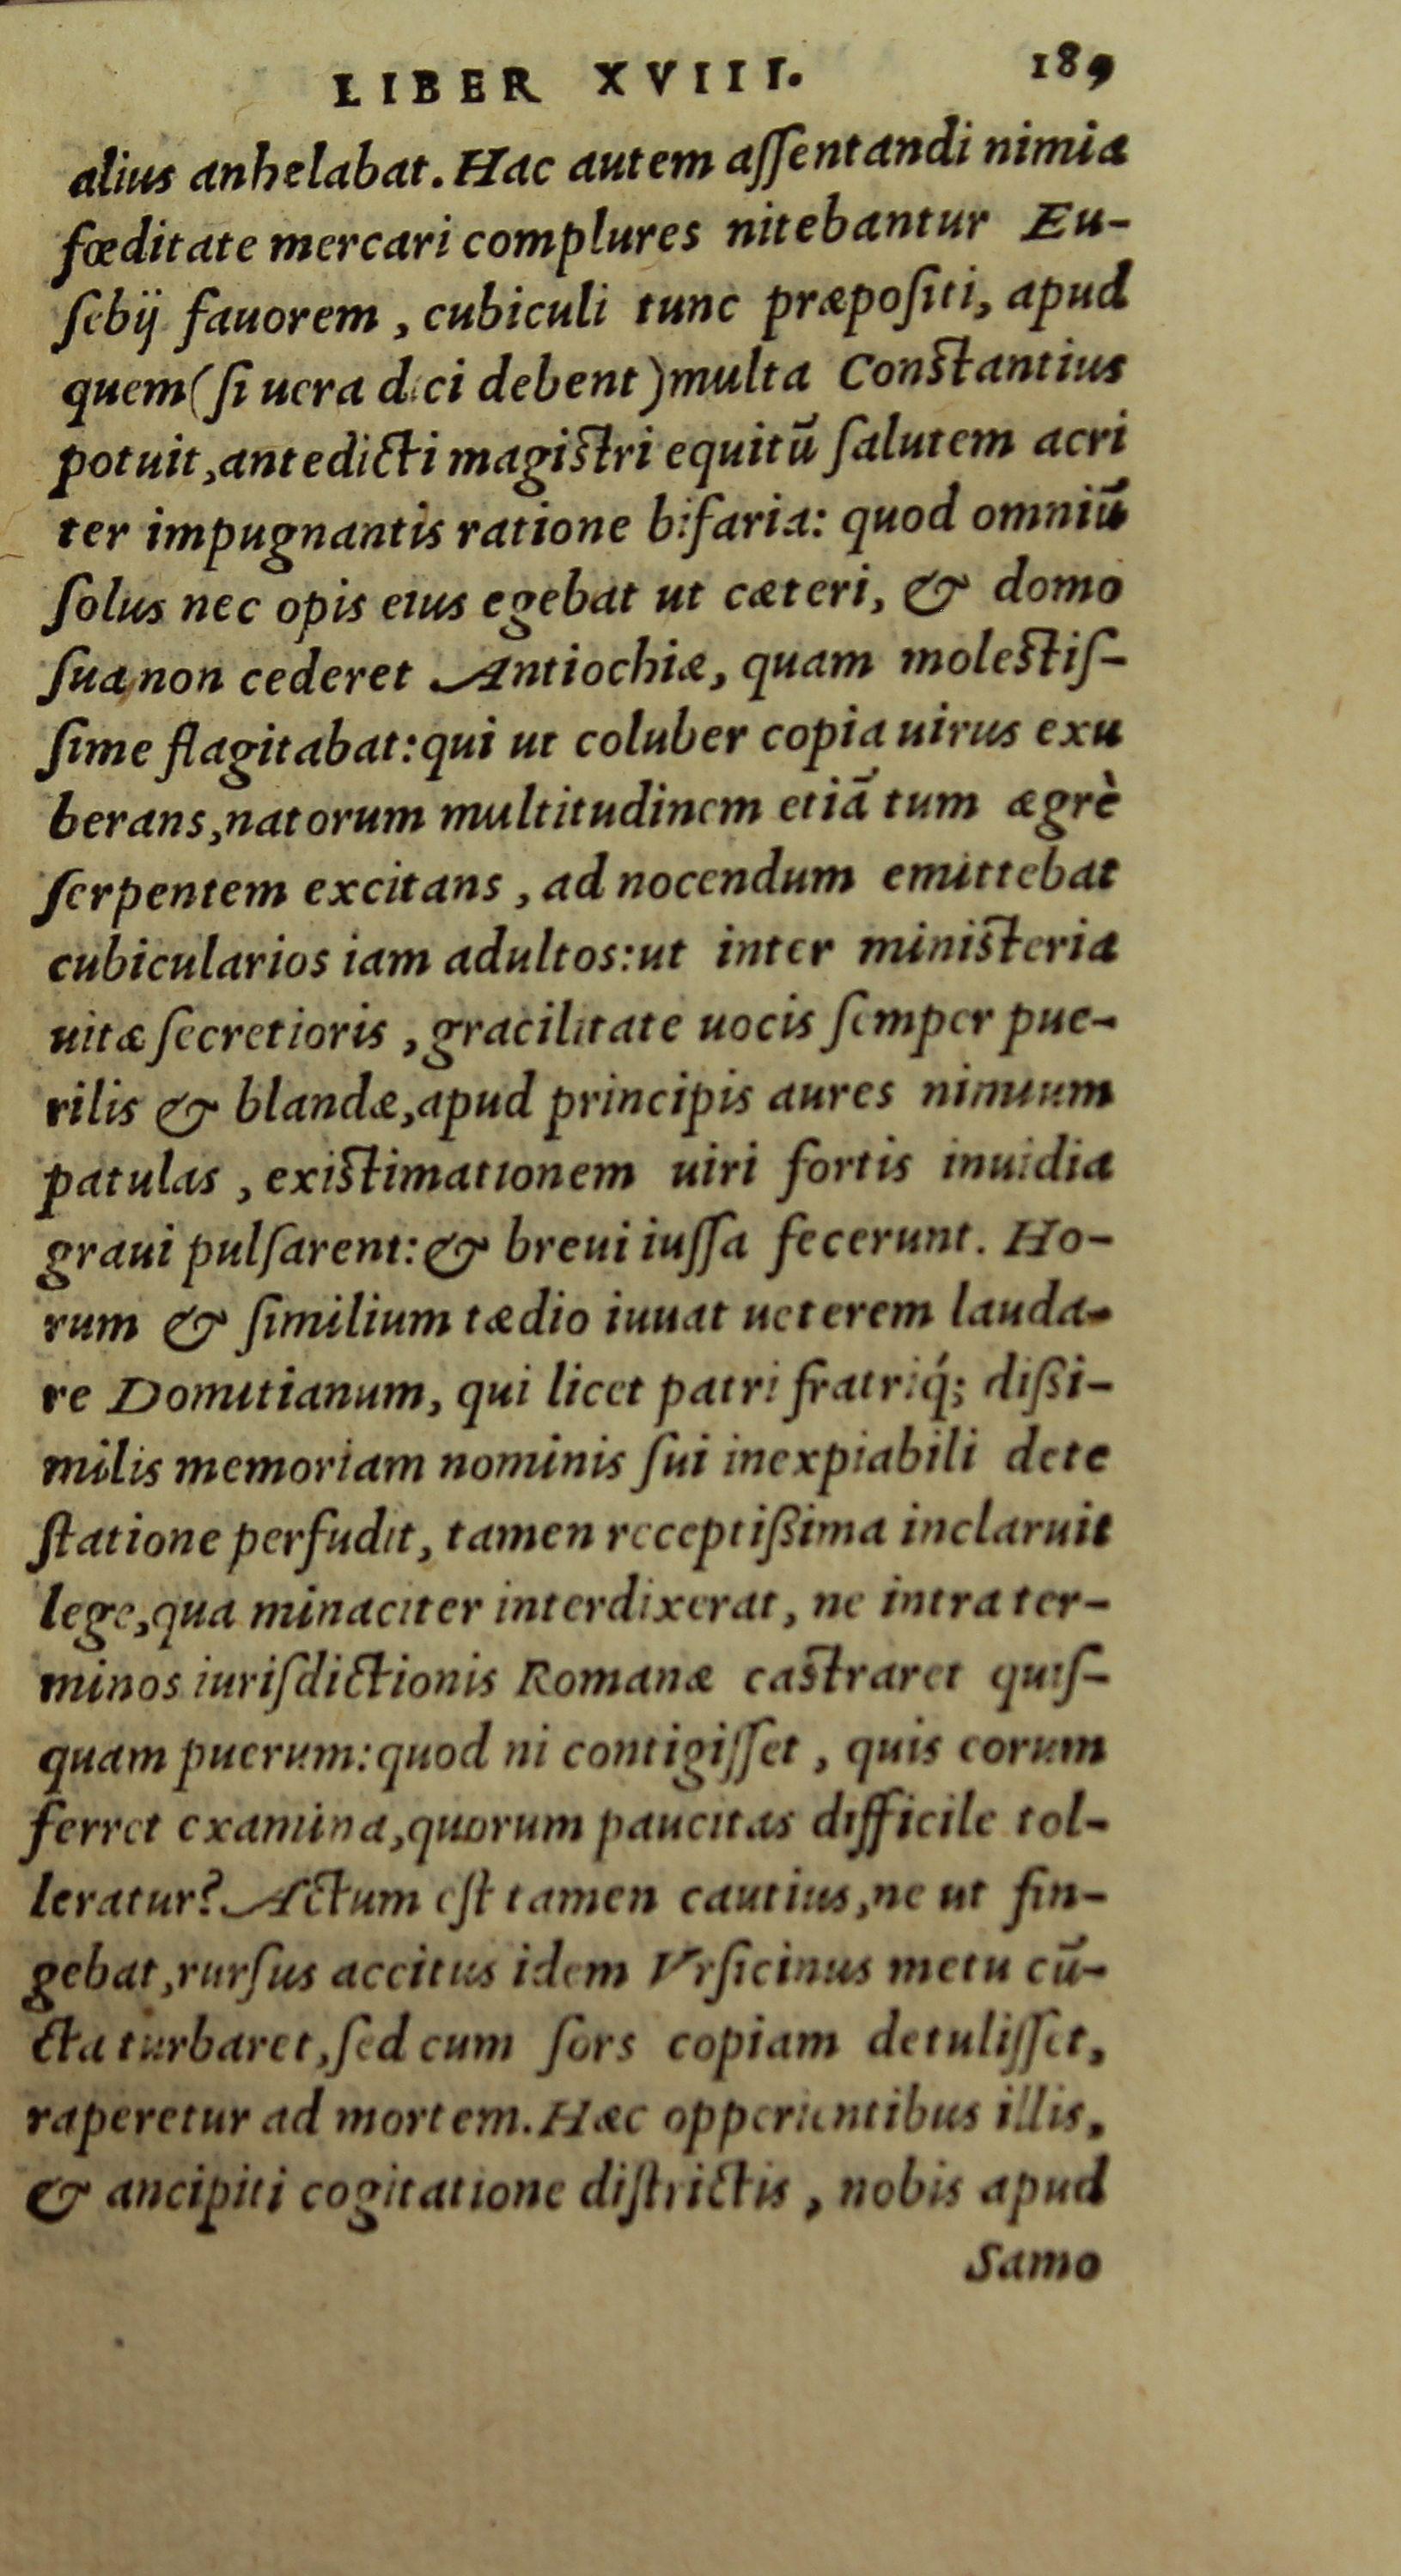 LIBER XVIII. 189
alius anhelabat. Hac autem aſſentandi nimia
fœditate mercari complures nitebantur Eu-
ſebij fauorem, cubiculi tunc præpoſiti, apud
quem (ſi uera dici debent) multa Conſtantius
potuit, antedicti magiſtri equitū ſalutem acri
ter impugnantis ratione bifaria: quod omniū
ſolus nec opis eius egebat ut cæteri, & domo
ſua non cederet Antiochiæ, quam moleſtiſ-
ſime flagitabat: qui ut coluber copia uirus exu
berans, natorum multitudinem etiā tum ægrè
ſerpentem excitans, ad nocendum emittebat
cubicularios iam adultos: ut inter miniſteria
uitæ ſecretioris, gracilitate uocis ſemper pue-
rilis & blandæ, apud principis aures nimium
patulas, exiſtimationem uiri fortis inuidia
graui pulſarent: & breui iuſſa fecerunt. Ho-
rum & ſimilium tædio iuuat ueterem lauda-
re Domitianum, qui licet patri fratriq́; dißi-
milis memoriam nominis ſui inexpiabili dete
ſtatione perfudit, tamen receptißima inclaruit
lege, qua minaciter interdixerat, ne intra ter-
minos iuriſdictionis Romanæ caſtraret quiſ-
quam puerum: quod ni contigiſſet, quis eorum
ferret examina, quorum paucitas difficile tol-
leratur? Actum eſt tamen cautius, ne ut fin-
gebat, rurſus accitus idem Vrſicinus metu cū-
cta turbaret, ſed cum ſors copiam detuliſſet,
raperetur ad mortem. Hæc opperientibus illis,
& ancipiti cogitatione diſtrictis, nobis apud
Samo